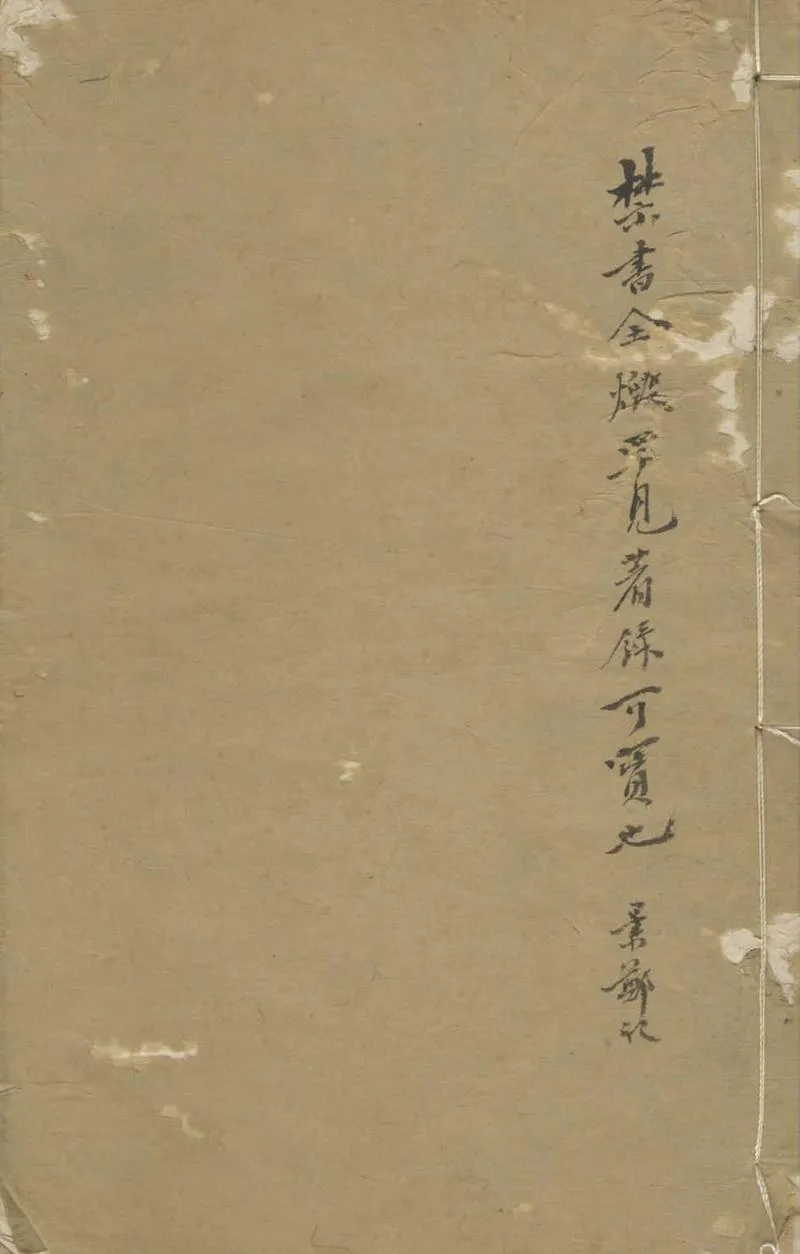 禁書全燬罕見著錄可寶也 景鄭記